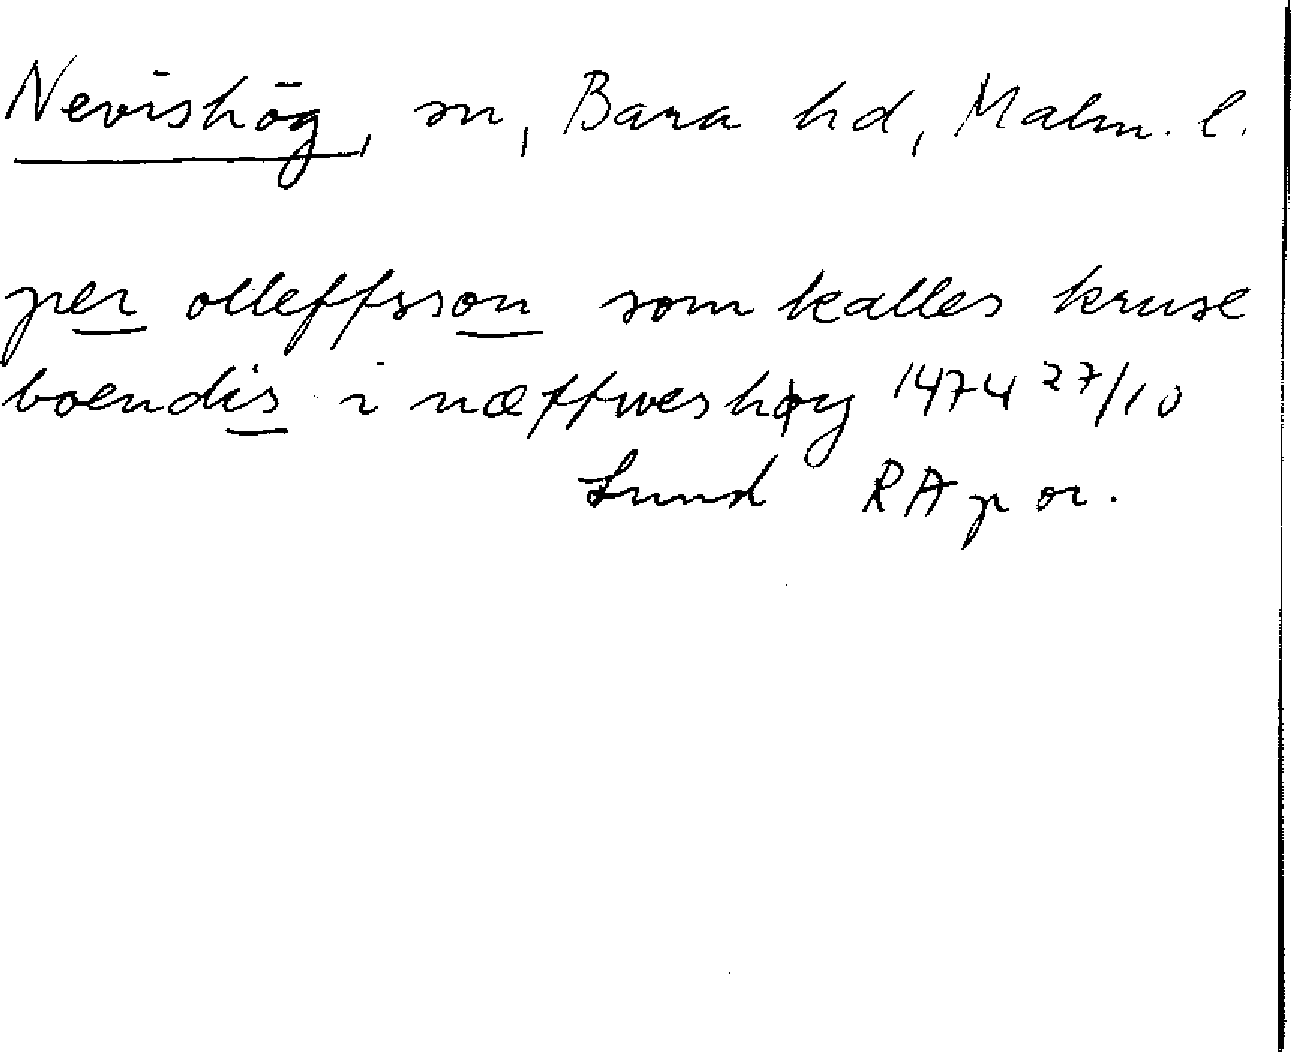 Nevishög, sn, Bara hd, Malm. l.
per olleffsson som kalles kruse
boendis i næffweshøg 1474 27/10
Lund RA p or.